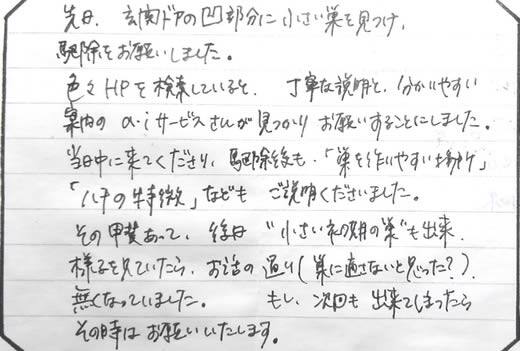 先日、玄関ドアの凹部分に小さい巣を見つけ、
駆除をお願いしました。
色々HPを検索していると、丁寧な説明と、分かりやすい
案内のα・iサービスさんが見つかりお願いすることにしました。
当日中に来てくださり、駆除後も、「巣を作りやすい場所」
「ハチの特徴」なども ご説明くださいました。
その甲斐あって、後日 "小さい初期の巣"も出来、
様子を見ていたら、お話の通り(巣に適さないと思った?)、
無くなっていました。 もし、次回も出来てしまったら
その時はお願いいたします。